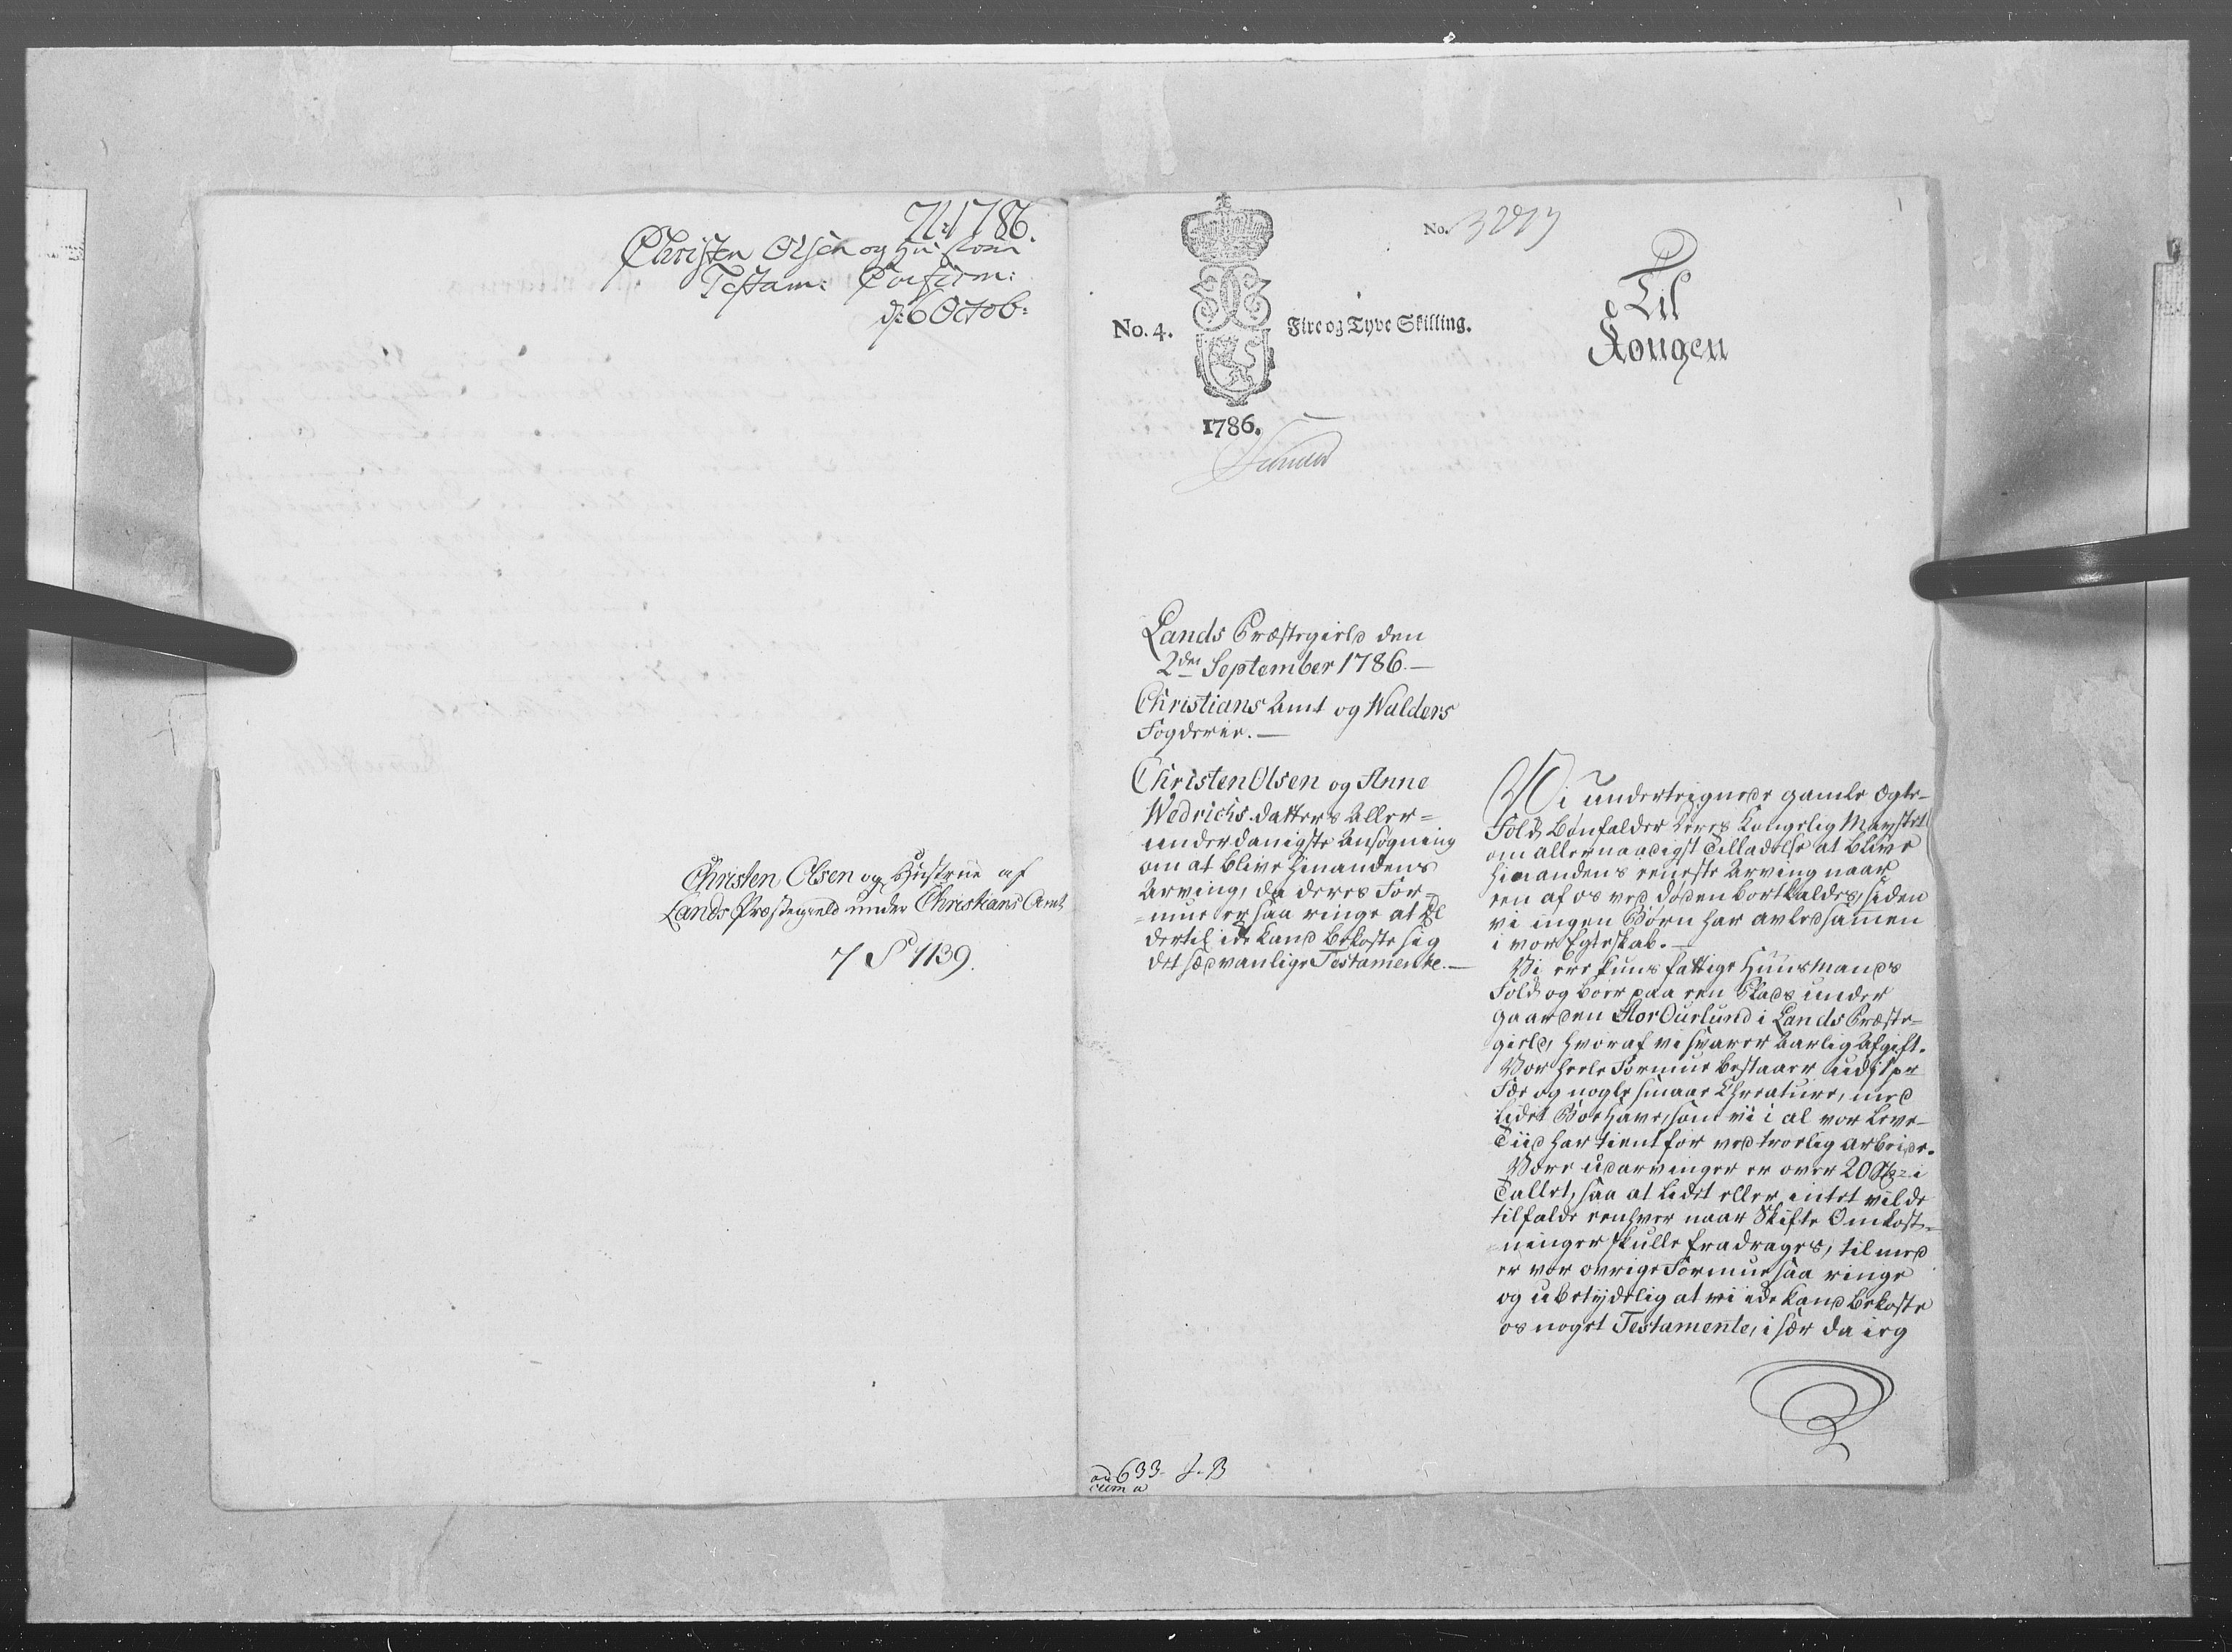 N: 1786.
Christen Olsen og Hustrue
Testam: Confirm:
d: 6 Octob:
Christen Olsen og Hustrue af
Lands Præstegield under Christians Amt
7 S 1139.
No. 4.
Fire og Tyve Skilling.
1786.
No.
Til
Kongen
Lands Præstegield den
2den September 1786. —
Christians Amt og Walders
Fogderie. —
Christen Olsen og Anne
Wedrichs datters Aller=
underdanigste Ansøgning
om at blive hinandens
Arving, da deres For=
=mue er saa ringe at de
dertil ide kand bekoste sig
det sædvanlige Testamente. —
Wi underteignede gamle Ægte-
Folk bønfalder Deres Kongelig Mayestet
om allernaadigst Tilladelse at blive
hinandens eeneste Arving naar
een af os ved døden bortkaldes, siden
vi ingen Børn har avled sammen
i vor Egteskab. —
Vi ere kuns fattige Huusmands
Folk og boer paa een Plads under
gaarden Stor Ourlund i Lands Præste=
gield, hvoraf vi svarer Aarlig Afgift.
Vor heele Formue bestaaer udj
og nogle smaae Creature, med
lidet Boehave, som vi i al vor Leve-
Tiid har tient for ved troelig arbeide.
Vore udarvinger er over 20 i
Tallet, saa at lidet eller intet vilde
tilfalde eenhver naar Skifte Omkost=
=ninger skulle fradrages, tilmed
er vor øvrige Formue saa ringe
og ubetydelig at vi ide kand bekoste
os noget Testamente, i sær da ieg
ad 633. J. B
cum a